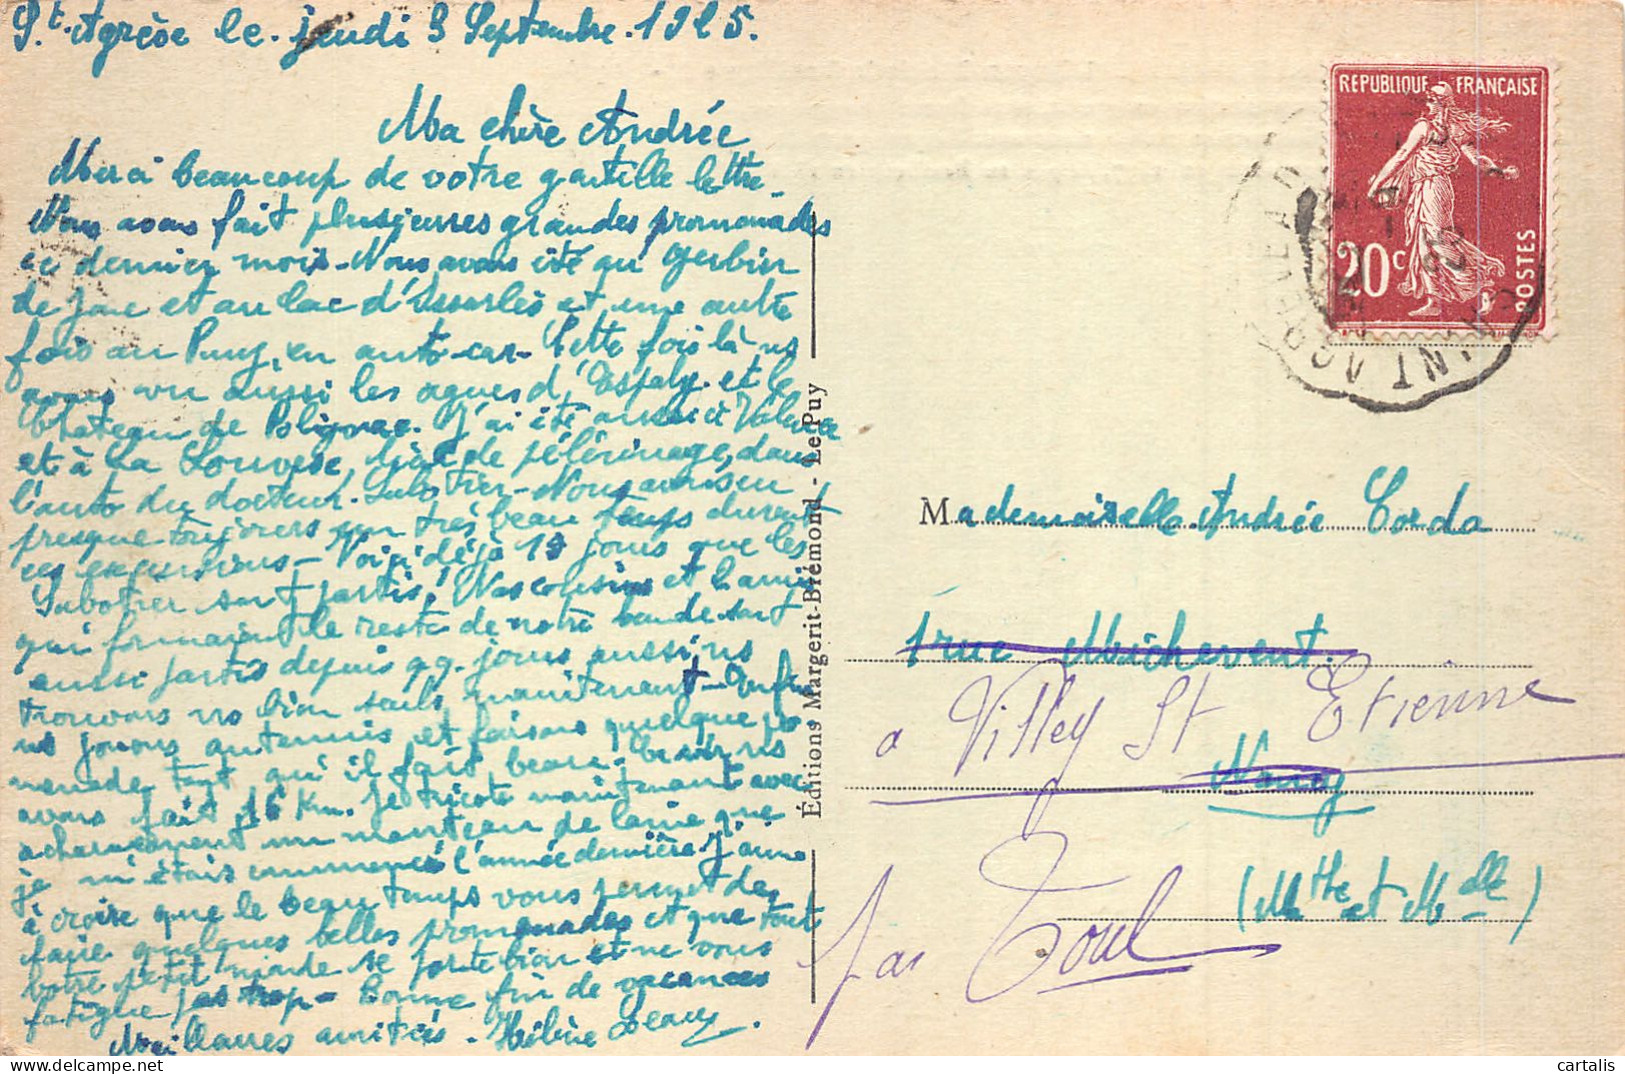 St. Agrève le jeudi 3 Septembre 1925.
Ma chère Andrée
Merci beaucoup de votre gentille lettre.
Nous avons fait plusieures grandes promenades
ce dernier mois. Nous avons été au Gerbier
de Jonc et au lac d'Issarlès et une autre
fois au Puy, en auto-car. Cette fois là ns
avons vu aussi les orgues d'Espaly et le
Château de Polignac. J'ai été aussi à Valence
et à La Louvesc, lieu de pélérinage, dans
l'auto du docteur Sabotier. Nous avons eu
presque toujours un très beau temps durant
ces excursions. Voici déjà 19 jours que les
Sabotier sont partis! Nos cousins et l'amie
qui formaient le reste de notre bande sont
aussi partis depuis qq. jours aussi ns
trouvons ns bien seuls maintenant. Enfin
ns jouons au tennis et faisons quelque pro
menade tant qu'il fait beau.
avons fait 16 Km. Je tricote maintenant avec
acharnement un manteau de laine que
je m'étais commencé l'année dernière. J'aime
à croire que le beau temps vous permet de
faire quelques belles promenades et que tout
votre petit monde se porte bien et ne vous
fatigue pas trop. Bonne fin de vacances
Meilleures amitiés. Hélène
Éditions Margerit-Brémond - Le Puy
REPUBLIQUE FRANÇAISE
20c
POSTES
SAINT AGREVE
Mademoiselle Andrée Corda
1 rue Michevent
a Villey St Etienne
Nancy
(Mthe et Mlle)
par Toul
cartalis.com